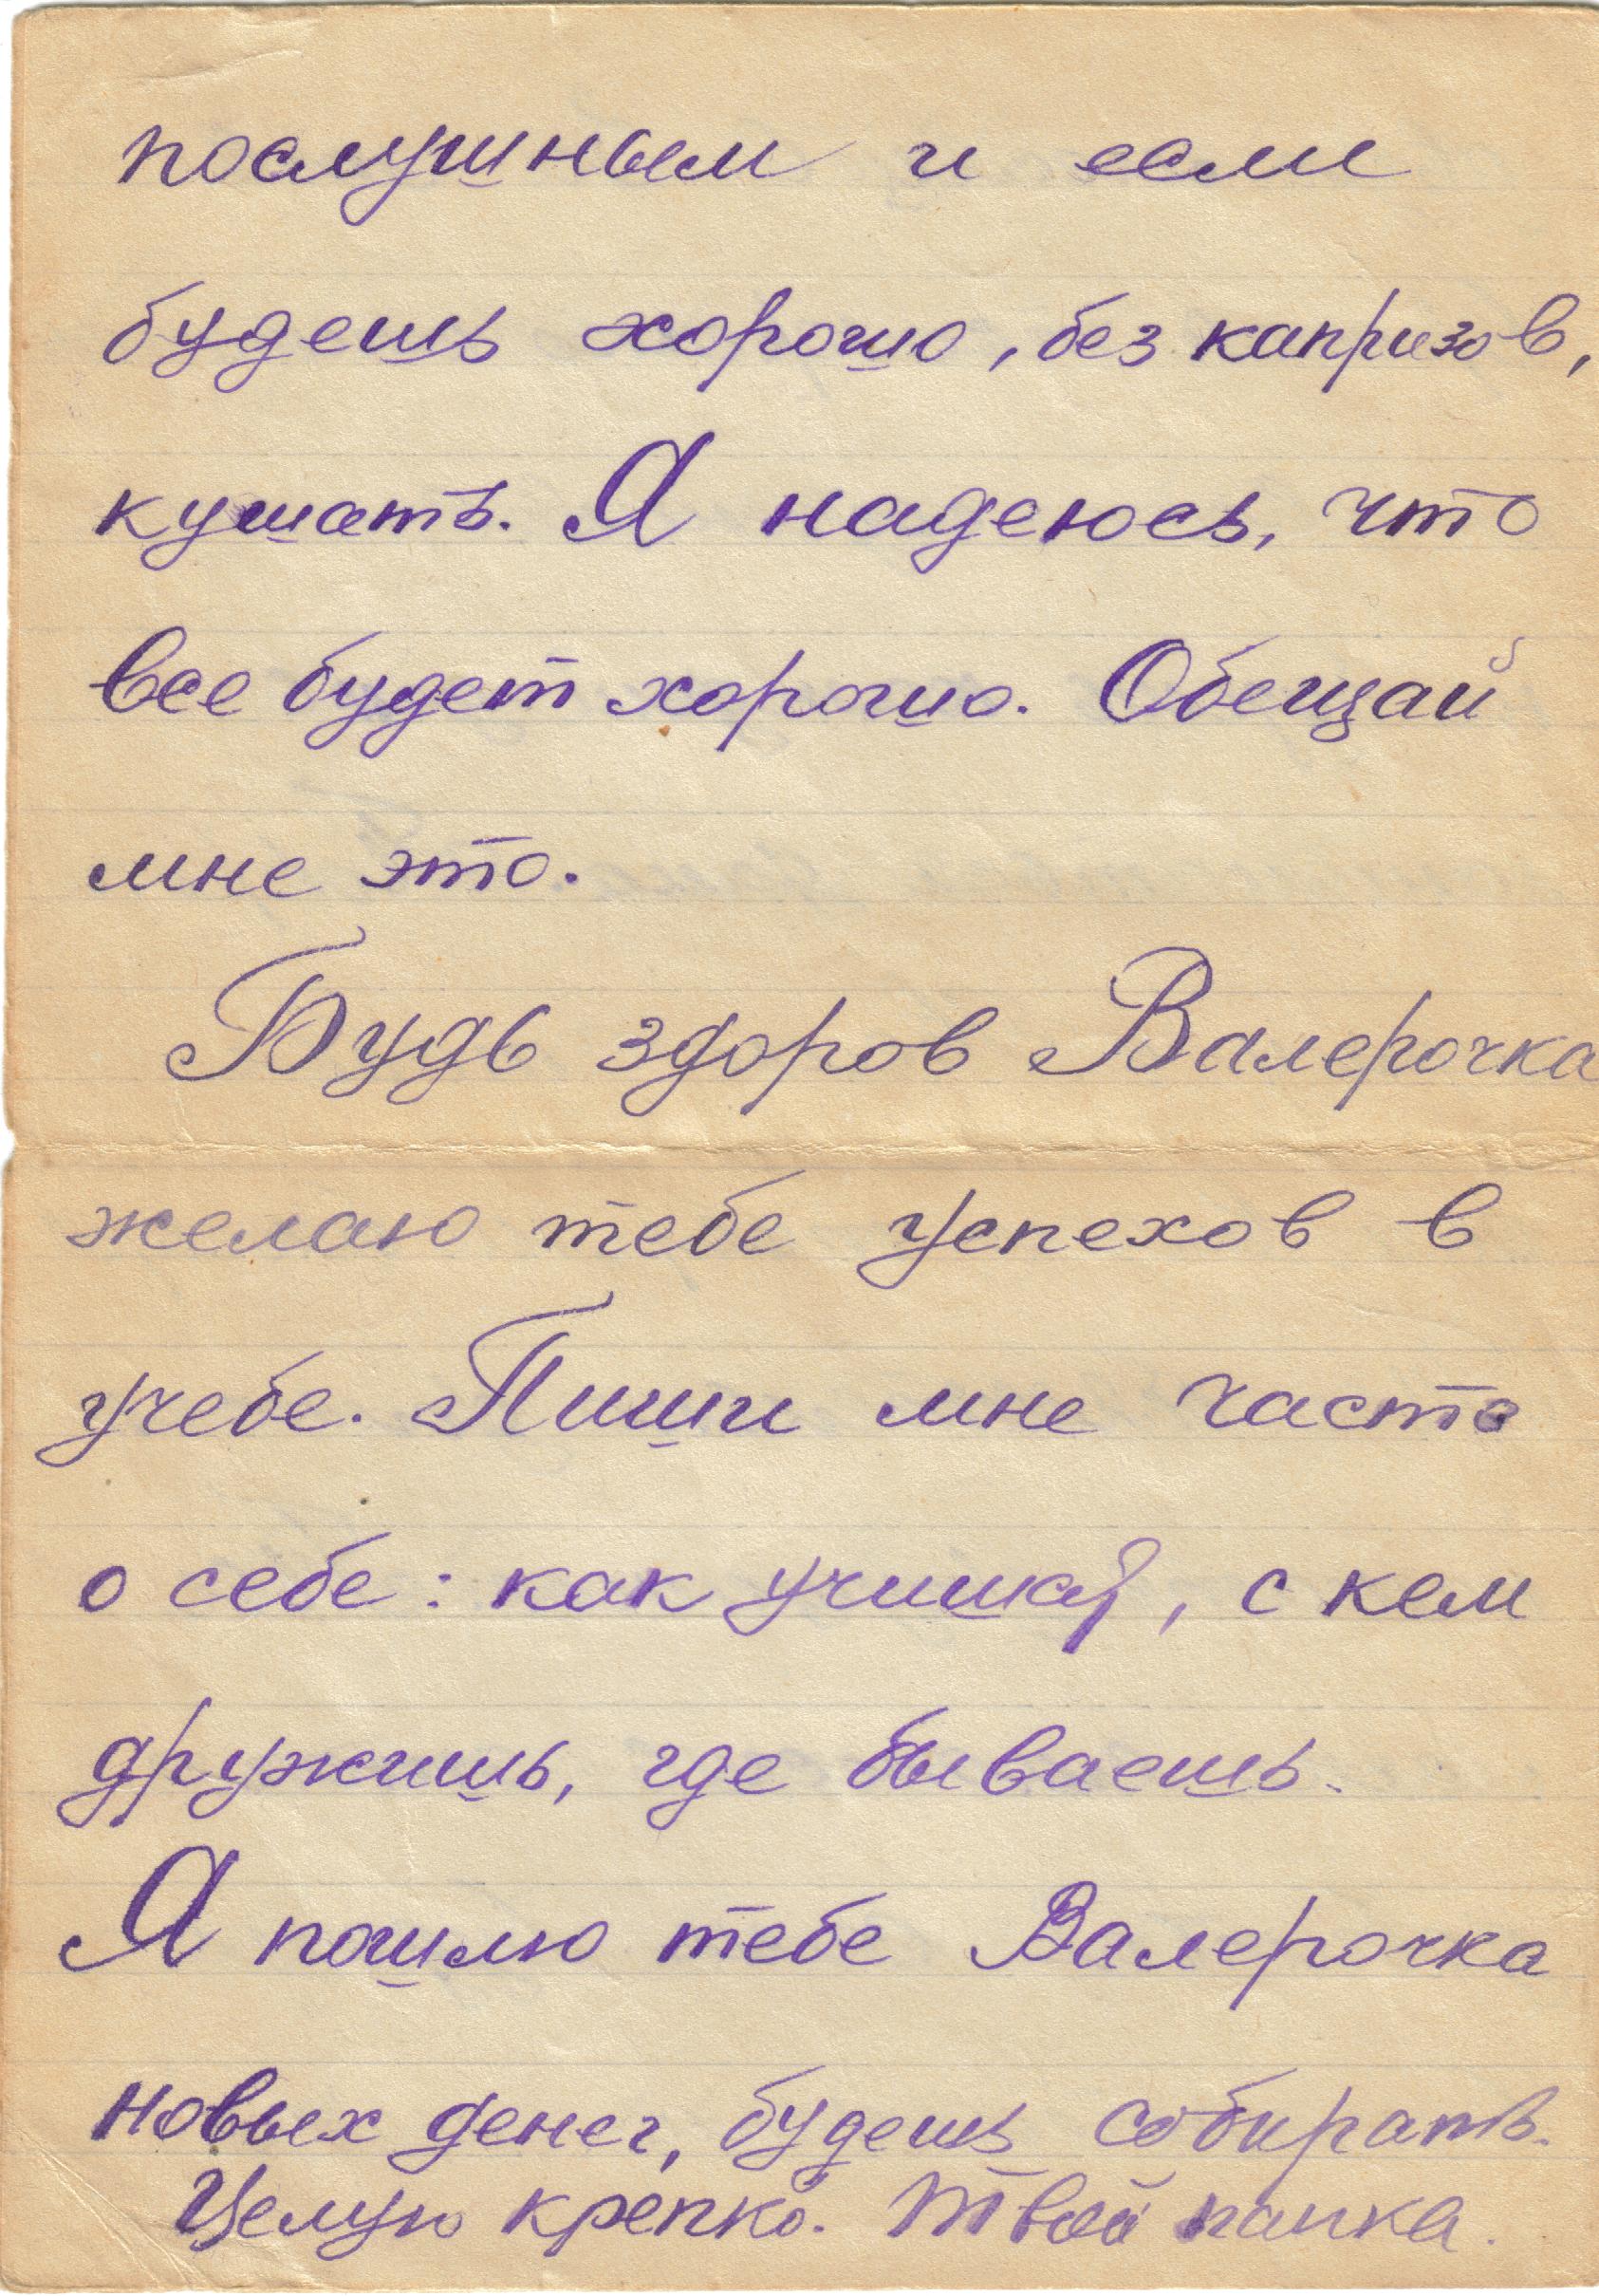 послушным и если
будешь хорошо, без капризов,
кушать. Я надеюсь, что
все будет хорошо. Обещай
мне это.
Будь здоров Валерочка
желаю тебе успехов в
учебе. Пиши мне часто
о себе: как учишся, с кем
дружишь, где бываешь.
Я пошлю тебе Валерочка
новых денег, будешь собирать.
Целую крепко. Твой папка.